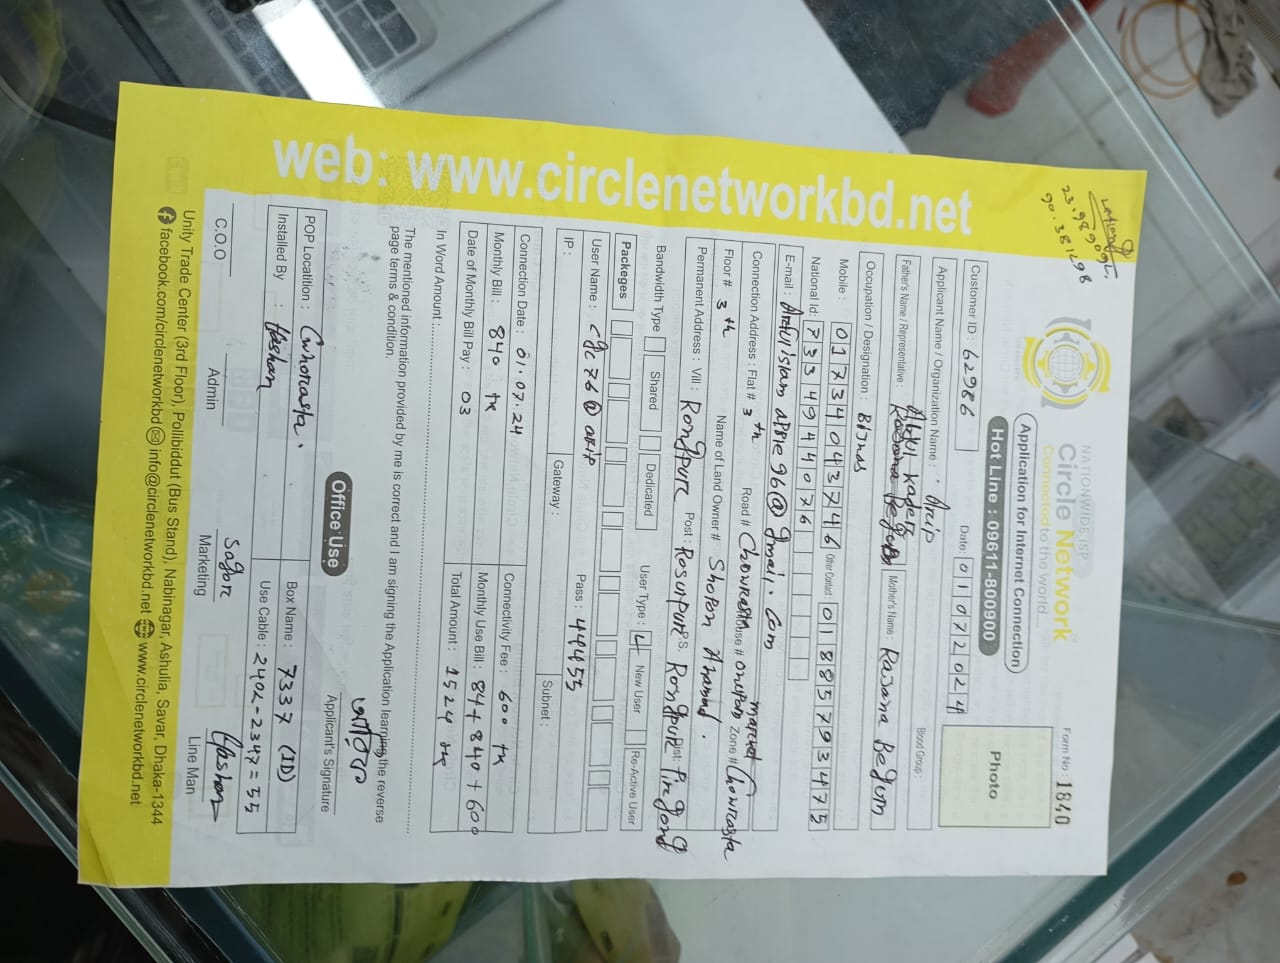 Location
23.989092,
90.381298
NATIONWIDE ISP
Circle Network
Connected to the world...
Application for Internet Connection
Hot Line : 09611-800900
Form No : 1840
Photo
Customer ID : 62986
Date: 01072024
Applicant Name / Organization Name : Arip
Blood Group :
Father's Name / Representative : Abdul kader
Mother's Name : Rajana Begum
Occupation / Designation : Bijnas
Mobile : 01734043746 Other Contact : 01885793475
National Id: 7334944076
E-mail : @gmail.com
Connection Address : Flat # 3 th Road # House # market Zone # Chowrasta
Floor # 3 th Name of Land Owner # Shopon Ahamad.
Permanent Address : Vill : Rongpure Post : Rosunpure P.S. Rongpure Dist: Pirgong
Bandwidth Type Shared Dedicated User Type : New User Re-Active User
Packeges
User Name : cgc76@arip Pass : 44455
IP : Gateway : Subnet :
Connection Date : 01.07.24 Connectivity Fee : 600 tk
Monthly Bill : 840 tk Monthly Use Bill : 84+840+600
Date of Monthly Bill Pay : 03 Total Amount : 1524 tk
In Word Amount :
The mentioned information provided by me is correct and I am signing the Application learning the reverse
page terms & condition.
Applicant's Signature
Office Use
POP Locatition : Cwhorasta. Box Name : 7337 (ID)
Installed By : Hashan Use Cable : 2402-2347=55
Sagore Hashan
C.O.O Admin Marketing Line Man
Unity Trade Center (3rd Floor), Pollibiddut (Bus Stand), Nabinagar, Ashulia, Savar, Dhaka-1344
facebook.com/circlenetworkbd info@circlenetworkbd.net www.circlenetworkbd.net
web: www.circlenetworkbd.net